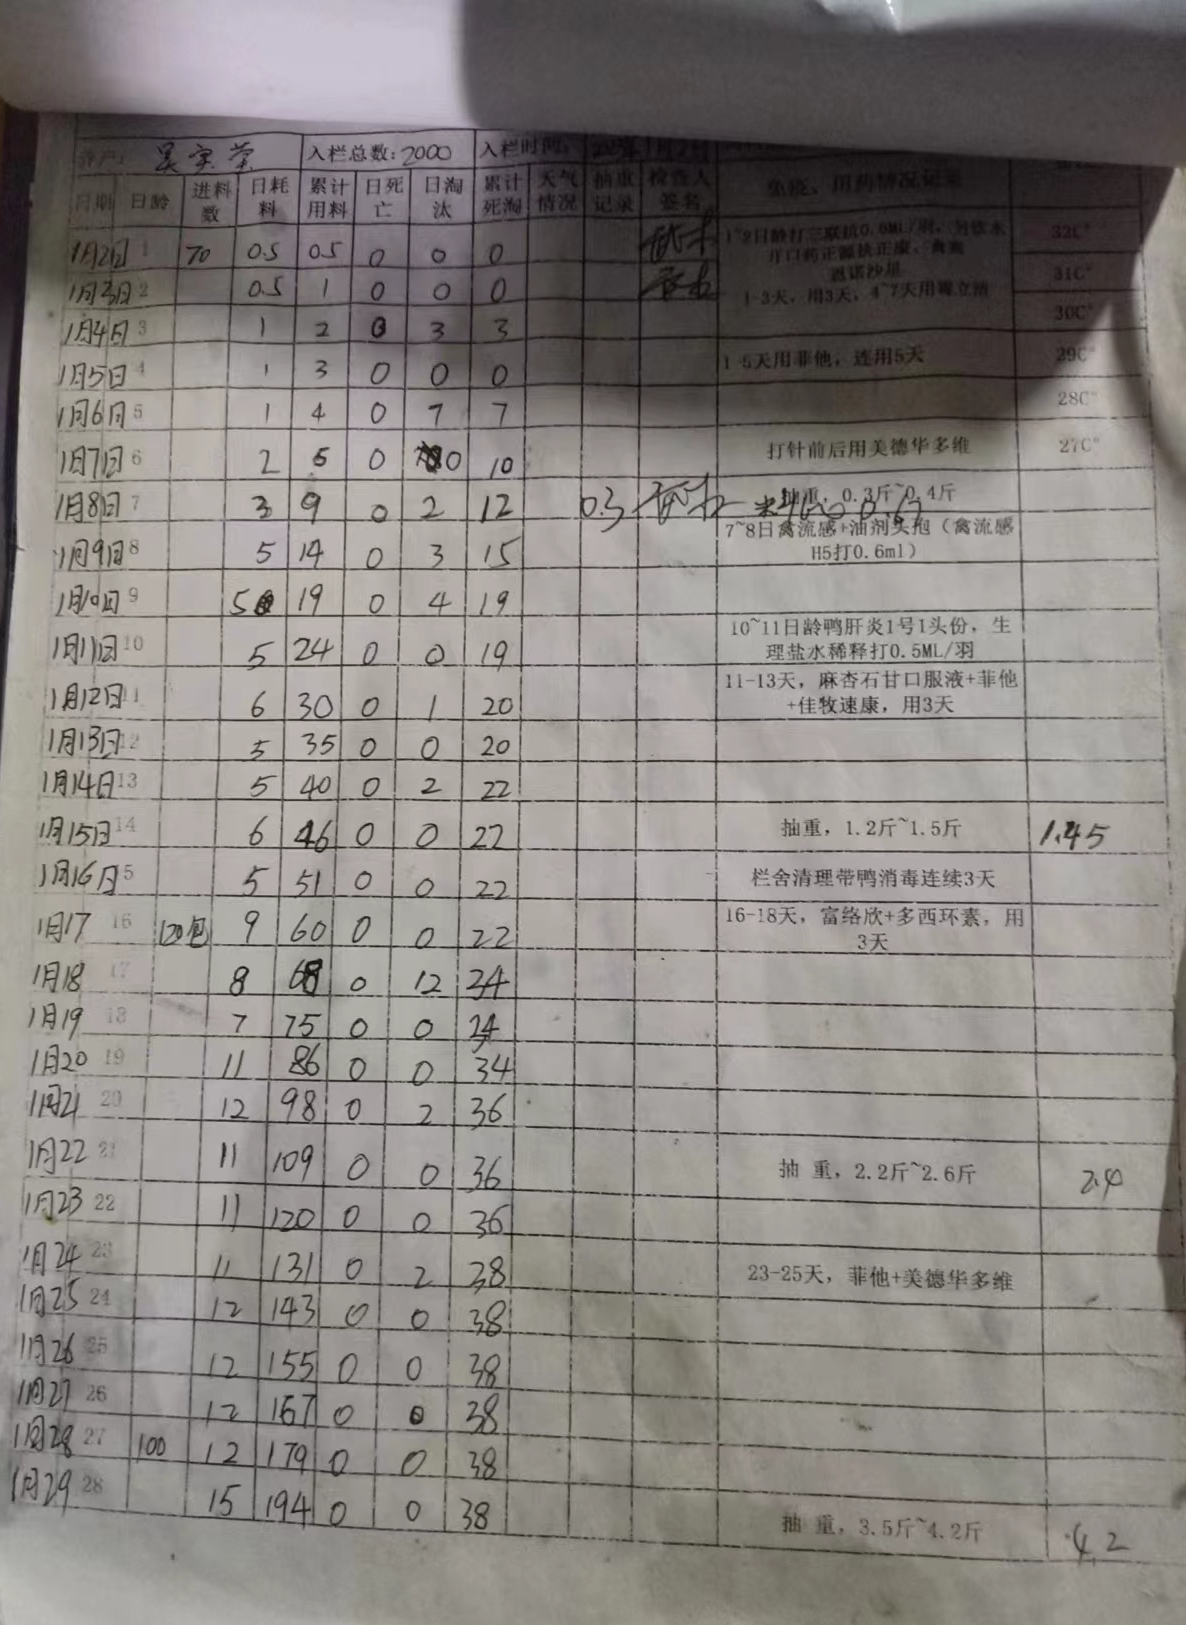 养户: 吴实荣 入栏总数:2000 入栏时间:
日期 日龄 进料数 日耗料 累计用料 日死亡 日淘汰 累计死淘 天气情况 抽重记录 检查人签名 免疫、用药情况记录
1月2日 1 70 0.5 0.5 0 0 0 1~2日龄打三联抗0.6ML/羽, 另饮水 32C°
开口药正源扶正康、禽离
恩诺沙星
1月3日 2 0.5 1 0 0 0 1-3天, 用3天, 4~7天用 31C°
1月4日 3 1 2 0 3 3 30C°
1月5日 4 1 3 0 0 0 1-5天用菲他, 连用5天 29C°
1月6日 5 1 4 0 7 7 28C°
1月7日 6 2 6 0 0 10 打针前后用美德华多维 27C°
1月8日 7 3 9 0 2 12 0.3 抽重, 0.3斤~0.4斤
1月9日 8 5 14 0 3 15 7~8日禽流感+油剂头孢(禽流感
H5打0.6ml)
1月10日 9 5 19 0 4 19
1月11日 10 5 24 0 0 19 10~11日龄鸭肝炎1号1头份, 生
理盐水稀释打0.5ML/羽
1月12日 11 6 30 0 1 20 11-13天, 麻杏石甘口服液+菲他
+佳牧速康, 用3天
1月13日 12 5 35 0 0 20
1月14日 13 5 40 0 2 22
1月15日 14 6 46 0 0 22 抽重, 1.2斤~1.5斤 1.45
1月16日 15 5 51 0 0 22 栏舍清理带鸭消毒连续3天
1月17 16 120包 9 60 0 0 22 16-18天, 富络欣+多西环素, 用
3天
1月18 17 8 68 0 12 34
1月19 18 7 75 0 0 34
1月20 19 11 86 0 0 34
1月21 20 12 98 0 2 36
1月22 21 11 109 0 0 36 抽 重, 2.2斤~2.6斤 2.4
1月23 22 11 120 0 0 36
1月24 23 11 131 0 2 38 23-25天, 菲他+美德华多维
1月25 24 12 143 0 0 38
1月26 25 12 155 0 0 38
1月27 26 12 167 0 0 38
1月28 27 100 12 179 0 0 38
1月29 28 15 194 0 0 38 抽 重, 3.5斤~4.2斤 4.2